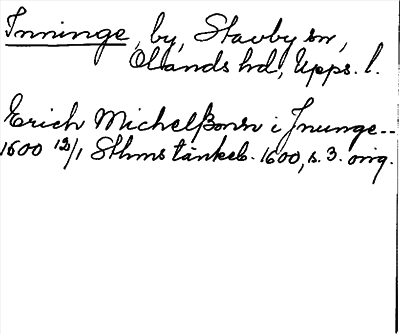 Inninge, by, Stavby sn,
Olands hd, Upps. l.
Erich Michelßonn i Jnunge--
1600 12/1 Sthms tänkeb. 1600, s. 3. orig.